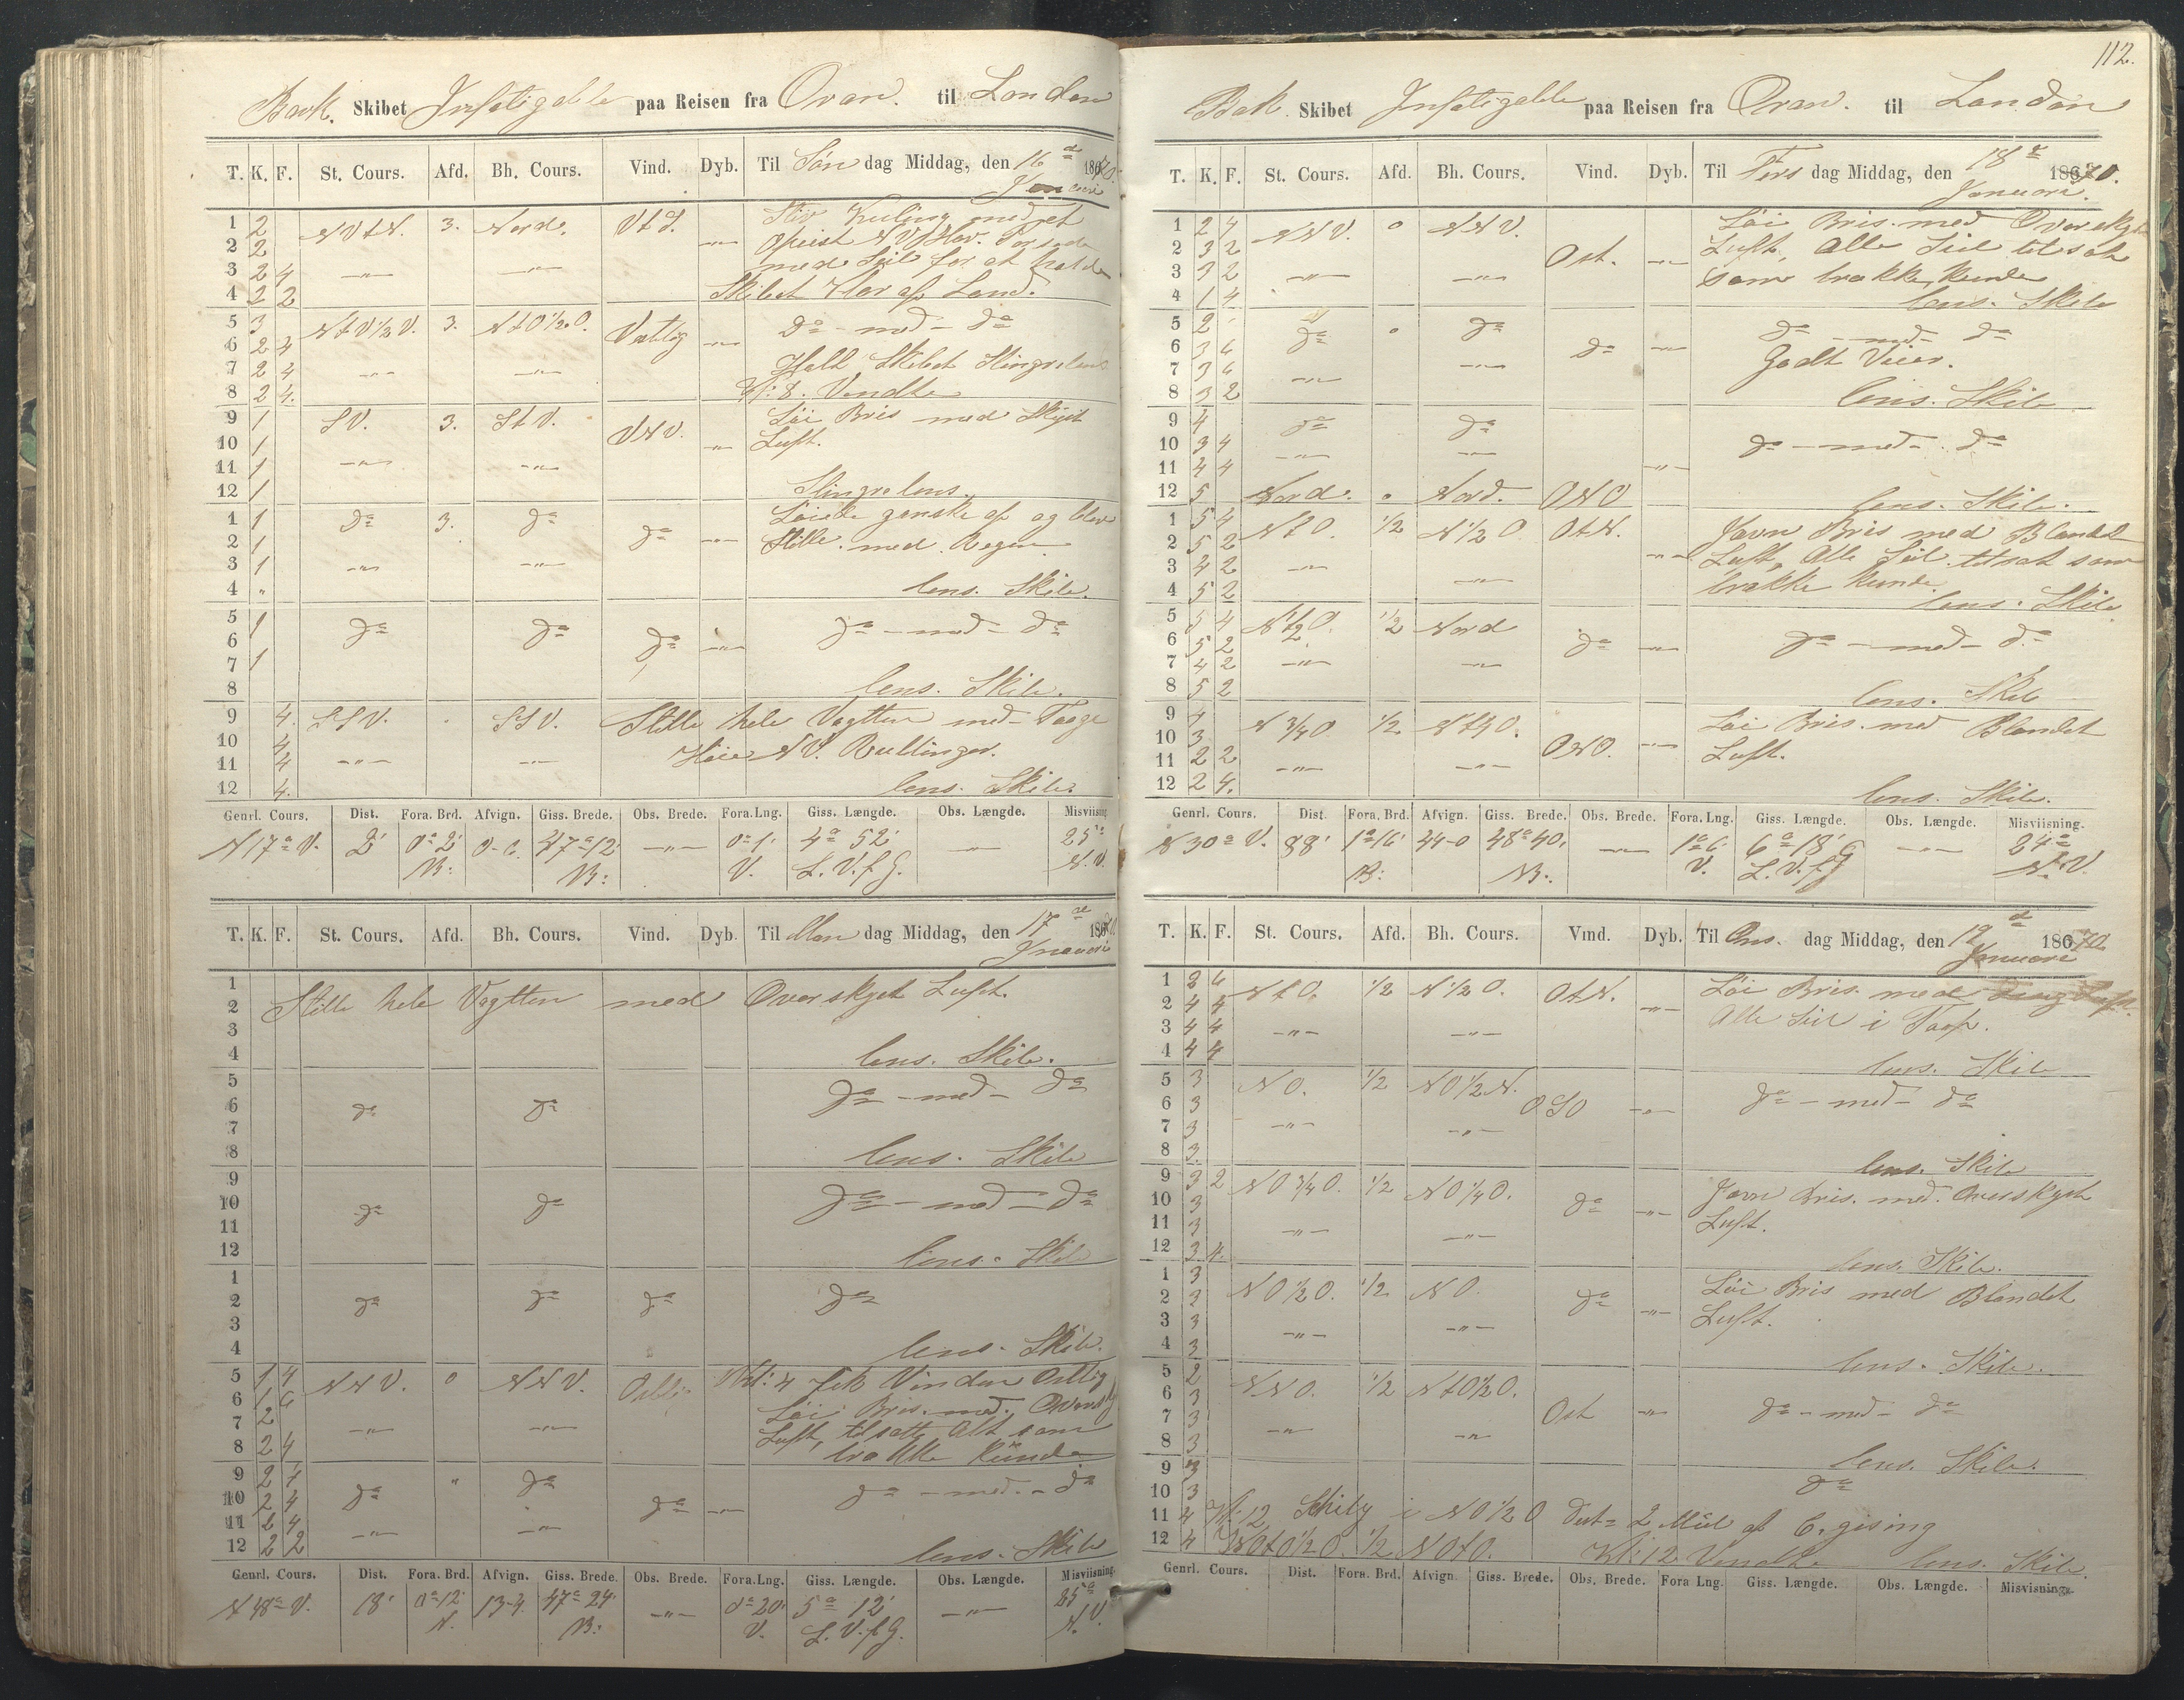 Bark. Skibet Infatigable paa Reisen fra Oran. til London
T. K. F. St. Cours. Afd. Bh. Cours. Vind. Dyb. Til Søn dag Middag, den 16 de 1870.
Januari
1 2 NVtN. 3. Nord. VtS. Stiv Kuling med et
2 2 opreist NV Hav.
3 2 4 —"— —"— med Seil for at holde
4 2 2 Skibet klar af Land.
5 3 NtV½V. 3. NtO½O. Vestlig —"— Do — med — Do
6 2 4
7 2 4 —"— —"— Holdt Skibet Slingrelens
8 2 4. Kl: 8. Vendte
9 1 SV. 3. StV. VNV. Løi Bris med Skyet
10 1 —"— Luft.
11 1 —"— —"—
12 1 Slingrelens.
1 1 Do 3. Do Do —"— Løiede ganske af og blev
2 1 Stille. med. Regen
3 1 —"— —"—
4 " lens. Skib.
5 1 Do Do Do —"— Do — med — Do
6
7 1
8 lens. Skib.
9 4. SSV. SSV. Stille hele Vagtten med Taage
10 4 Høie NV. Rullinger.
11 4 —"— —"—
12 4. lens. Skib.
Genrl. Cours. Dist. Fora. Brd. Afvign. Giss. Brede. Obs. Brede. Fora.Lng. Giss. Længde. Obs. Længde. Misviisning
N17°V. 2' 0°2' 0-6. 47°12' —"— 0°1' 4° 52' —"— 25°
B: B: V. L. V. f G. N. V.
T. K. F. St. Cours. Afd. Bh. Cours. Vind. Dyb. Til Man dag Middag, den 17 de 1870
Januari
1
2 Stille hele Vagtten med Overskyet Luft.
3
4 lens. Skib.
5 Do — med — Do
6 Do Do
7
8 lens. Skib
9
10 Do Do Do — med — Do
11
12 lens. Skib
1
2 Do Do Do Do
3
4 lens. Skib.
5 1 4 NNV. 0 NNV. Ostlig Kl: 4 fik Vinden Ostlig
6 1 6 Løi Bris. med. Oversky
7 2 —"— —"— Luft, tilsatte Alt som
8 2 4 trække kunde
9 2 4 Do " Do Do —"— Do — med — Do
10 2 4
11 2 4 —"— —"—
12 2 2 lens. Skib
Genrl. Cours. Dist. Fora. Brd. Afvign. Giss. Brede. Obs. Brede. Fora.Lng. Giss. Længde. Obs. Længde. Misviisning.
N 48° V. 18' 0°12' 13-4. 47°24' —"— 0°20' 5° 12' —"— 25°
N. B: V. L. V. f G. N. V.
112.
Bark. Skibet Infatigable paa Reisen fra Oran. til London
T. K. F. St. Cours. Afd. Bh. Cours. Vind. Dyb. Til Tirs dag Middag, den 18 de 1870.
Januari.
1 2 4 NNV. 0 NNV. Løi Bris. med Overskyet
2 3 2 Ost. —"— Luft, Alle Seil tilsat
3 3 2 —"— —"— som trække kunde
4 1 4 lens. Skib
5 2 Do 0 Do Do —"— Do — med — Do
6 3 6 Godt Veier.
7 3 6 —"— —"—
8 3 2 lens. Skib
9 4 Do Do
10 3 4 —"— —"— Do — med — Do
11 4 4 —"—
12 5 Nord. 0 Nord. ONO lens. Skib.
1 5 4 NtO. 1/2 N½O OtN. Jævn Bris med Blandet
2 5 2 —"— Luft, Alle Seil tilsat som
3 4 2 —"— —"— trække kunde.
4 5 2 lens. Skib
5 5 4 N½O. 1/2 Nord
6 5 2 Do —"— Do — med — Do
7 4 2 —"— —"—
8 5 2 lens. Skib
9 4 N¾O. 1/2 N¼O. Løi Bris. med Blandet
10 3 ONO. —"— Luft.
11 2 2 —"— —"—
12 2 4. lens. Skib.
Genrl. Cours. Dist. Fora. Brd. Afvign. Giss. Brede. Obs. Brede. Fora.Lng. Giss. Længde. Obs. Længde. Misviisning.
N 30° V. 88' 1°16' 44-0 48°40' —"— 1°6' 6° 18' —"— 24°
B: B: V. L. V. f G N. V.
T. K. F. St. Cours. Afd. Bh. Cours. Vind. Dyb. Til Ons. dag Middag, den 19 de 1870
Januari
1 3 6 NtO. 1/2 N½O. OtN. Løi Bris. med
2 4 4 —"— Alle Seil i Taap.
3 4 4 —"— —"—
4 4 4 lens. Skib
5 3 NO. 1/2 NO½N.
6 3 OSO —"— Do — med — Do
7 3 —"— —"—
8 3 lens. Skib
9 3 2 NO¾O. 1/2 NO¼O. Jævn Bris. med. Overskyet
10 3 Do —"— Luft.
11 3 —"— —"—
12 3 4. lens. Skib.
1 3 NO½O. 1/2 NO. Løi Bris med Blandet
2 3 Do —"— Luft.
3 3 —"— —"—
4 3 lens. Skib.
5 2 NNO. 1/2 NtO½O.
6 3 Ost —"— Do — med — Do
7 3 —"— —"—
8 3 lens. Skib.
9 3 Do
10 3
11 4 Kl: 12 Scilly i NO½O Dist= 2 Miil af
12 4 NOtO½O. 1/2 NOtO. Kl: 12 Vendte lens. Skib.
Genrl. Cours. Dist. Fora. Brd. Afvign Giss. Brede. Obs. Brede. Fora Lng. Giss. Længde. Obs. Længde. Misvisning.